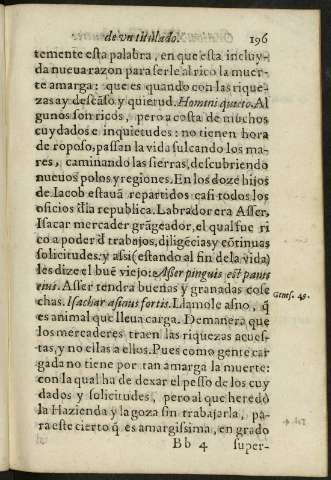 de vn titulado. 196
temente esta palabra, en que esta incluy-
da nueua razon para serle al rico la muer-
te amarga: que es quando con las rique-
zas ay descāso y quietud. Homini quieto. Al
gunos son ricos, pero a costa de muchos
cuydados e inquietudes: no tienen hora
de roposo, passan la vida sulcando los ma-
res, caminando las sierras, descubriendo
nueuos polos y regiones. En los doze hijos
de Iacob estauā repartidos casi todos los
oficios d̄la republica. Labrador era Asser,
Isacar mercader grāgeador, el qual fue ri
co a poder d̄ trabajos, diligēcias y cōtinuas
solicitudes. y assi (estando al fin de la vida)
les dize el buē viejo: Asser pinguis est panis
eius. Asser tendra buenas y granadas cose
chas. Isachar asinus fortis. Llamole asno, q̄
es animal que lleua carga. De manera que
los mercaderes traen las riquezas acues-
tas, y no ellas a ellos. Pues como gente car
gada no tiene por tan amarga la muerte:
con la qual ha de dexar el pesso de los cuy
dados y solicitudes, pero al que heredò
la Hazienda y la goza sin trabajarla, pa-
ra este cierto q̄ es amargissima, en grado
Bb 4 super-
Genes. 49.